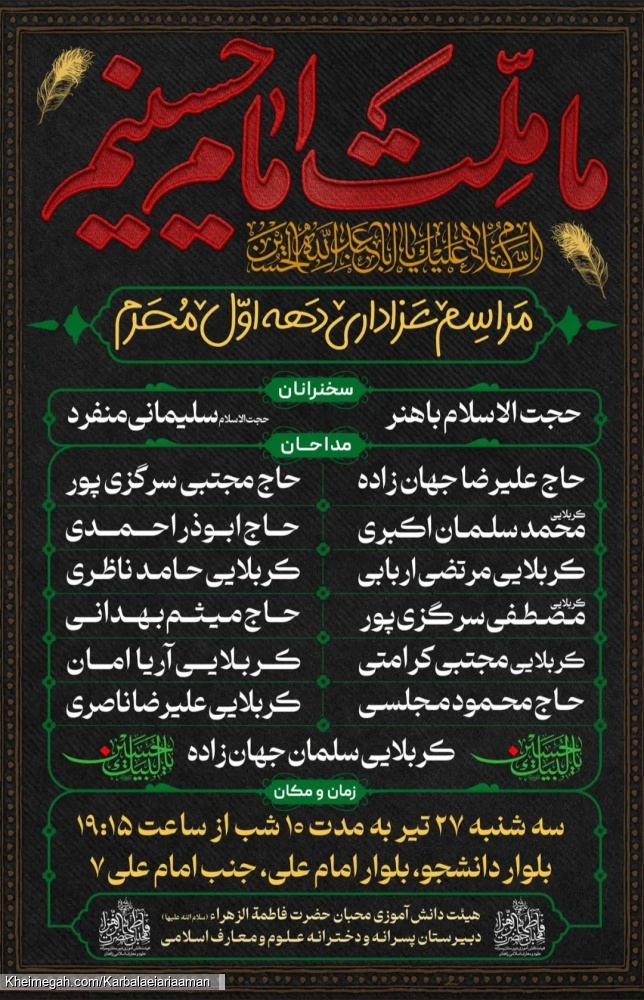 ما ملّت امام حسینیم
السلام علیک یا اباعبدالله الحسین
مَراسِم عَزاداری دَهه اوّل مُحَرَم
سخنرانان
حجت الاسلام باهنر
حجت‌الاسلام سلیمانی منفرد
مداحان
حاج علیرضا جهان زاده
حاج مجتبی سرگزی پور
کربلایی محمد سلمان اکبری
حاج ابوذر احمدی
کربلایی مرتضی اربابی
کربلایی حامد ناظری
کربلایی مصطفی سرگزی پور
حاج میثم بهدانی
کربلایی مجتبی کرامتی
کربلایی آریا امان
حاج محمود مجلسی
کربلایی علیرضا ناصری
کربلایی سلمان جهان زاده
لبیک یا حسین
لبیک یا حسین
زمان و مکان
سه شنبه ۲۷ تیر به مدت ۱۰ شب از ساعت ۱۹:۱۵
بلوار دانشجو، بلوار امام علی، جنب امام علی ۷
هیئت دانش آموزی محبان حضرت فاطمة الزهراء (سلام الله علیها)
دبیرستان پسرانه و دخترانه علوم و معارف اسلامی
Kheimegah.com/Karbalaeiariaaman